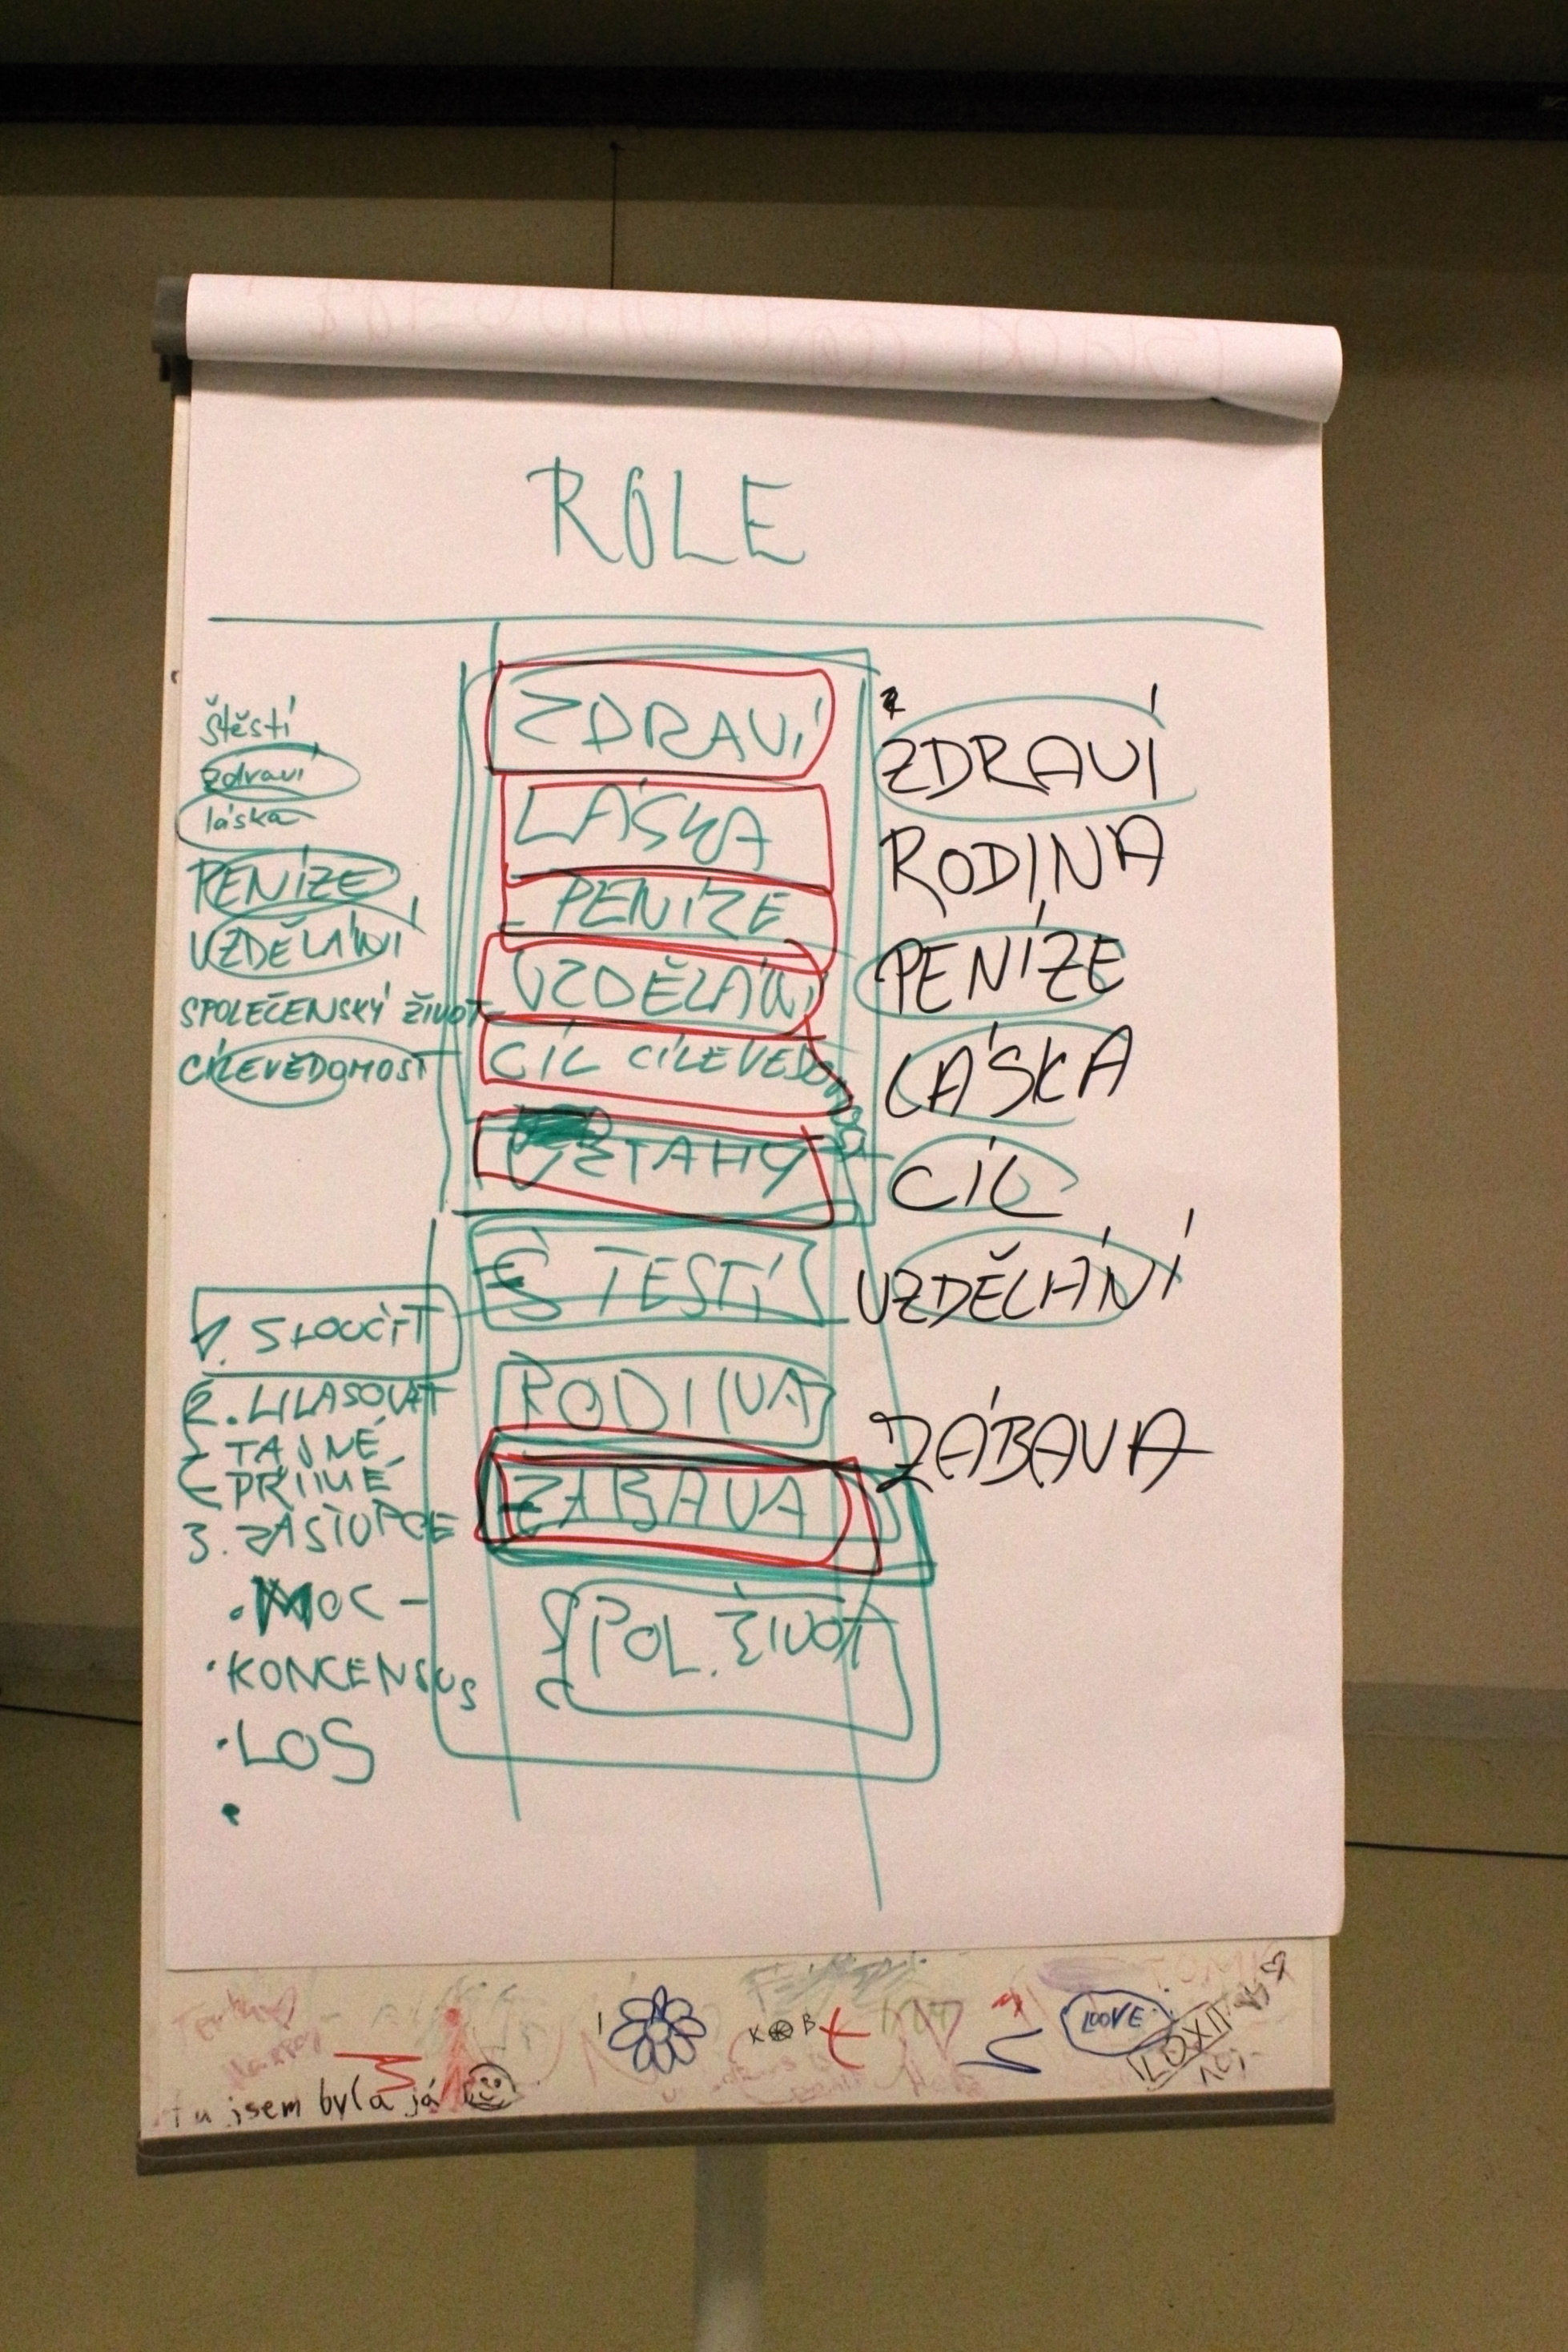 ROLE
štěstí
zdraví
láska
PENÍZE
VZDĚLÁNÍ
SPOLEČENSKÝ ŽIVOT
CÍLEVĚDOMOST
1. SLOUČIT
2. HLASOVAT
TAJNÉ
PŘÍMÉ
3. ZÁSTUPCE
• MOC -
• KONCENSUS
• LOS
•
ZDRAVÍ
LÁSKA
PENÍZE
VZDĚLÁNÍ
CÍL CÍLEVEDO
VZTAHY
ŠTESTÍ
RODINA
ZÁBAVA
SPOL. ŽIVOT
ZDRAVÍ
RODINA
PENÍZE
LÁSKA
CÍL
VZDĚLÁNÍ
ZÁBAVA
Tu jsem byla já
K B
LOOVE